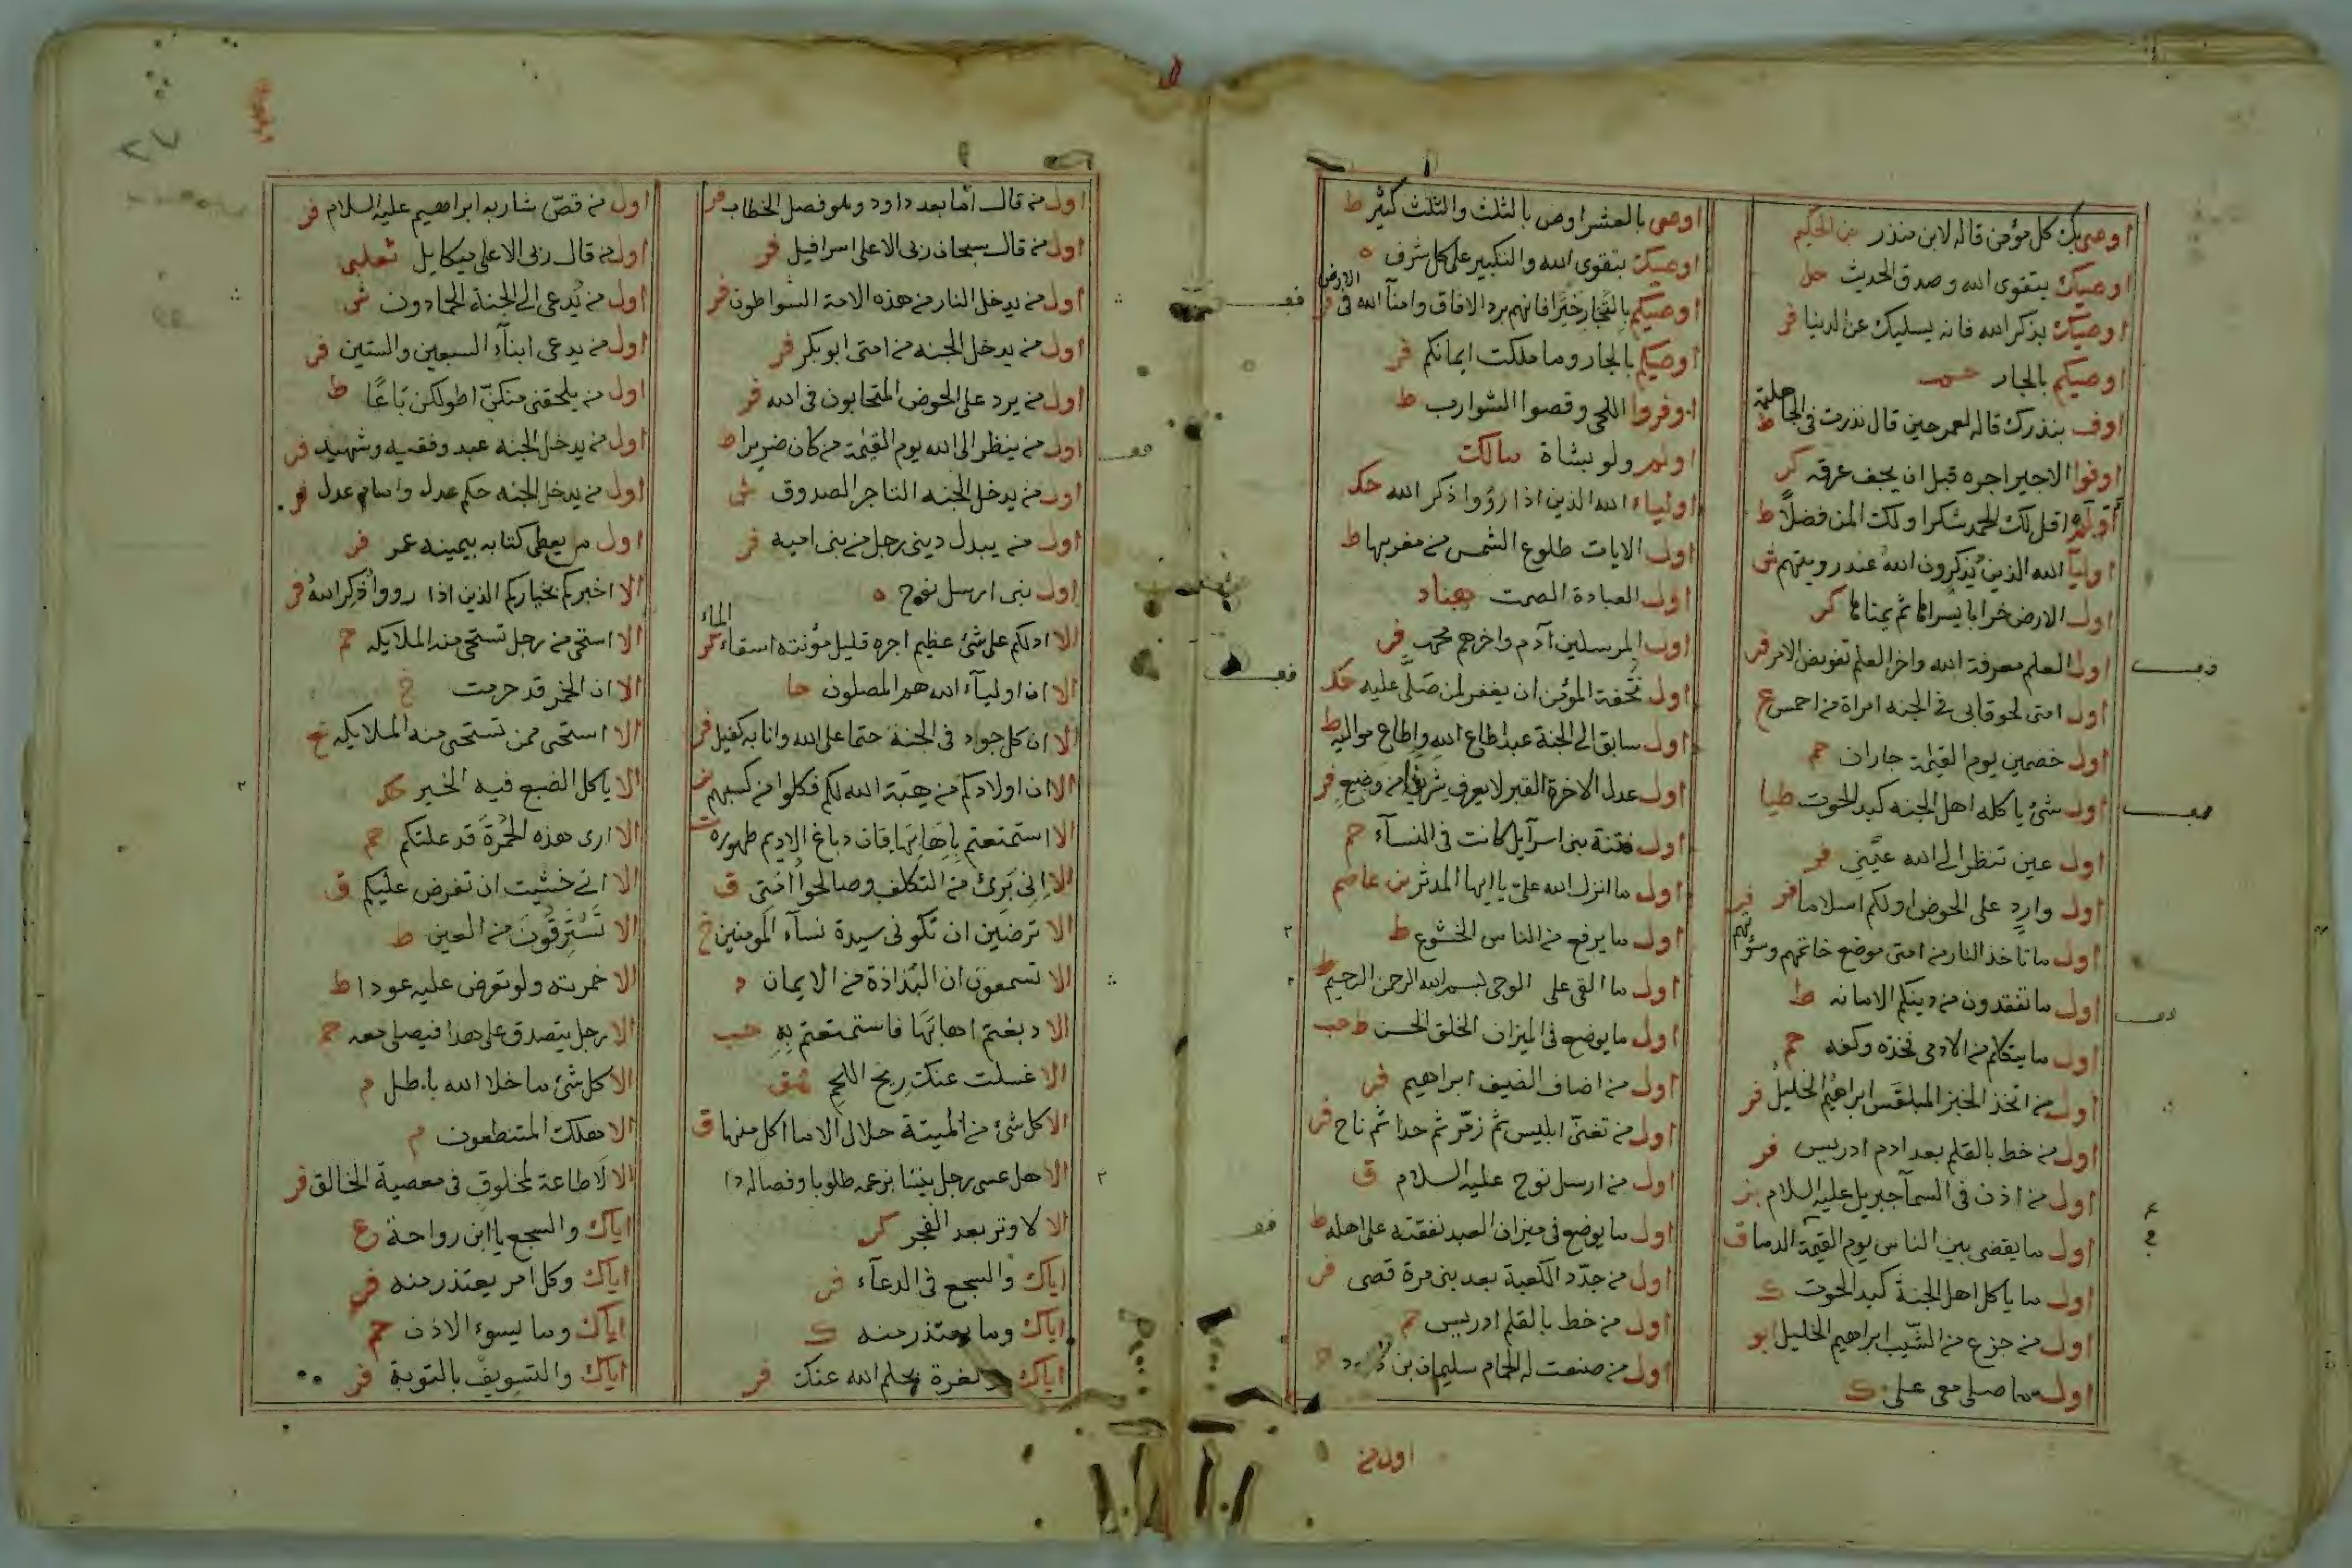 اوصى بك كل مؤمن قاله لابن منذر الحكيم
اوصيك بتقوى الله وصدق الحديث حل
اوصيك بذكر الله فانه يسليك عن الدنيا فر
اوصيكم بالجار حم
اوف بنذرك قاله لعمر حين قال نذرت فى الجاهلية ط
اوفوا الاجير اجره قبل ان يجف عرقه كر
اقل لك الحمد شكرا ولك المن فضلاً ط
اوليآ الله الذين يُذكرون الله عند رويتهم ش
اول الارض خرابا يسراها ثم يمناها كر
اول العلم معرفة الله واخر العلم تفويض الامر فر
اول امتى لحوقا بى فى الجنه امراة من احمس ع
اول خصمين يوم القيمة جاران حم
اول شئ ياكله اهل الجنه كبد الحوت طيا
اول عين تنظر الى الله عينى فر
اول وارد على الحوض اولكم اسلاما فر
اول ما تاخذ النار من امتى موضع خاتمهم وسرتهم فر
اول ما تفقدون من دينكم الامانه ط
اول ما يتكلم من الادمى فخذه وكفه حم
اول من اتخذ الخبز المبلقس ابراهيم الخليل فر
اول من خط بالقلم بعد ادم ادريس فر
اول من اذن فى السمآ جبريل عليه السلام بز
اول ما يقضى بين الناس يوم القيمة الدما ق
اول ما ياكل اهل الجنة كبد الحوت ك
اول من جزع من الشيب ابراهيم الخليل ابو
اول من صلى معى على ك
اوصى بالعشر اوص بالثلث والثلث كثير ط
اوصيك بتقوى الله والتكبير على كل شرف ه
اوصيكم بالتجار خيرا فانهم برد الافاق وامنآ الله فى الارض فر
اوصيكم بالجار وما ملكت ايمانكم فر
اوفروا اللحى وقصوا الشوارب ط
اولم ولو بشاة مالك
اولياء الله الذين اذا رؤوا ذكر الله حك
اول الايات طلوع الشمس من مغربها ط
اول العبادة الصمت هناد
اول المرسلين آدم واخرهم محمد فر
اول تُحفة المؤمن ان يغفر لمن صَلَّى عليه حك
اول سابق الى الجنة عبد اطاع الله واطاع مواليه ط
اول عدل الاخرة القبر لا يعرف شريفا من وضيع فر
اول فتنة بنى اسرآيل كانت فى النسآء حم
اول ما انزل الله على يا ايها المدثر بن عاصم
اول ما يرفع من الناس الخشوع ط
اول ما القى على الوحى بسم الله الرحمن الرحيم ط
اول ما يوضع فى الميزان الخلق الحسن ط حب
اول من اضاف الضيف ابراهيم فر
اول من تغنى ابليس ثم زمّر ثم حدا ثم ناح فر
اول من ارسل نوح عليه السلام ق
اول ما يوضع فى ميزان العبد نفقته على اهله ط
اول من جدّد الكعبة بعد بنى مرة قصى فر
اول من خط بالقلم ادريس حم
اول من صنعت له الحمام سليمان بن
اول من
اول من قال اما بعد داود وهو فصل الخطاب فر
اول من قال سبحان ربى الاعلى اسرافيل فر
اول من يدخل النار من هذه الامة السواطون فر
اول من يدخل الجنه من امتى ابو بكر فر
اول من يرد على الحوض المتحابون فى الله فر
اول من ينظر الى الله يوم القيمة من كان ضريرا ط
اول من يدخل الجنه التاجر الصدوق ش
اول من يبدل دينى رجل من بنى اميه فر
اول نبى ارسل نوح ه
الا ادلكم على شئ عظيم اجره قليل مؤنته اسقاء الماء كر
الا ان اوليآء الله هم المصلون حا
الا ان كل جواد فى الجنة حتما على الله وانا به كفيل فر
الا ان اولادكم من هبة الله لكم فكلوا من كسبهم
الا استمتعتم باهابها فان دباغ الاديم طهوره
الا انى برئ من التكلف وصالحوا امتى ق
الا ترضين ان تكونى سيدة نسآء المومنين خ
الا تسمعون ان البذاذة من الايمان د
الا دبغتم اهابها فاستمتعتم به حب
الا غسلت عنك ريح اللحم هق
الا كل شئ من الميتة حلال الا ما اكل منها ق
الا هل عسى رجل
الا لا وتر بعد الفجر كر
اياك والسجع فى الدعآء فر
اياك وما يعتذر منه ك
اياك يحلم الله عنك فر
اول من قصّ شاربه ابراهيم عليه السلام فر
اول من قال ربى الاعلى ميكايل ثعلبى
اول من يُدعى الى الجنة الحمادون ش
اول من يدعى ابنآء السبعين والستين فر
اول من يلحقنى منكنّ اطولكن بَاعًا ط
اول من يدخل الجنه عبد وفقيه وشهيد فر
اول من يدخل الجنه حكم عدل وامام عدل فر
اول من يعطى كتابه بيمينه عمر فر
الا اخبركم بخياركم الذين اذا رووا ذُكِر الله فر
الا استحى من رجل تستحى منه الملايكه حم
الا ان الخمر قد حرمت خ
الا استحى ممن تستحى منه الملايكه
الا ياكل الضبع فيه الخير حك
الا ارى هذه الحُمرةَ قد علتكم حم
الا انى خشيت ان تفرض عليكم ق
الا تَسْتَرقُونَ من العين ط
الا خمرته ولو تعرض عليه عودا ط
الا رجل يتصدق على هذا فيصلى معه حم
الا كل شئ ما خلا الله باطل م
الا هلك المتنطعون م
الا لا طاعة لمخلوق فى معصية الخالق فر
اياك والسجع يا ابن رواحة ع
اياك وكل امر يعتذر منه فر
اياك وما يسوء الاذن حم
اياك والتسويف بالتوبة فر